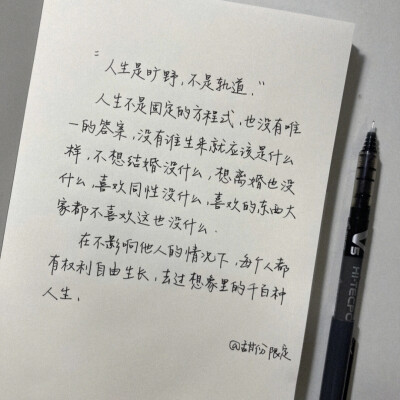 “人生是旷野，不是轨道。”
人生不是固定的方程式，也没有唯
一的答案，没有谁生来就应该是什么
样，不想结婚没什么，想离婚也没
什么，喜欢同性没什么，喜欢的东西大
家都不喜欢这也没什么.
在不影响他人的情况下，每个人都
有权利自由生长，去过想象里的千百种
人生.
限定
V5
HI-TECPO